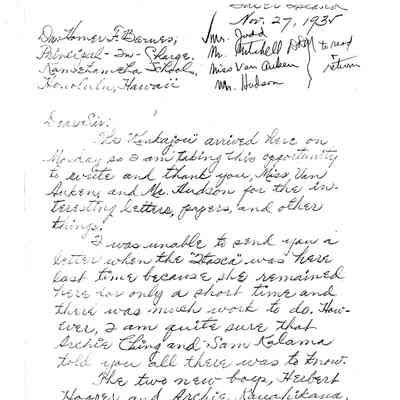 Nov. 27, 1935
Dr. Homer F. Barnes,
Principal-In-Charge,
Kamehameha School,
Honolulu, Hawaii
Mr. Judd
Mr. Mitchell
Miss Van Auken
Mr. Hudson
to read
return
Dear Sir:
The "Kinkajou" arrived here on
Monday so I am taking this opportunity
to write and thank you, Miss Van
Auken, and Mr. Hudson for the in-
teresting letters, papers, and other
things.
I was unable to send you a
letter when the "Itasca" was here
last time because she remained
here for only a short time and
there was much work to do. How-
ever, I am quite sure that
Archie Ching and Sam Kalama
told you all there was to know.
The two new boys, Herbert
Hooper and Archie Kauahikaua,